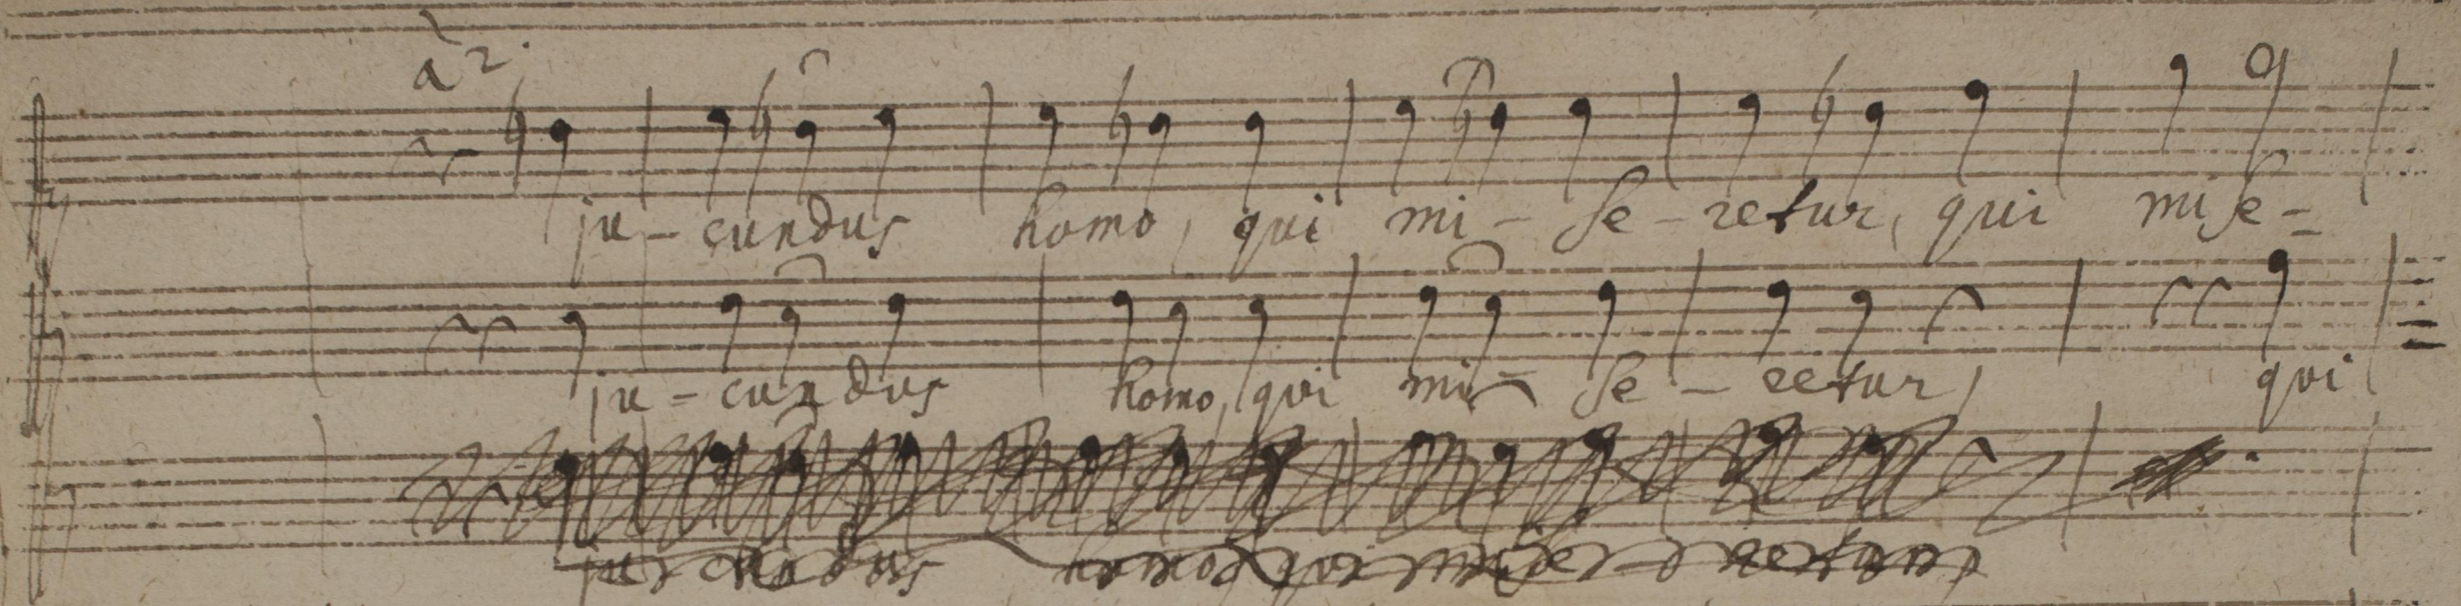 à 2.
ju - cundus homo, qui mi - se - retur, qui mise -
ju - cundus homo, qui mi - se - retur, qui
ju - cundus homo qui mise - retur